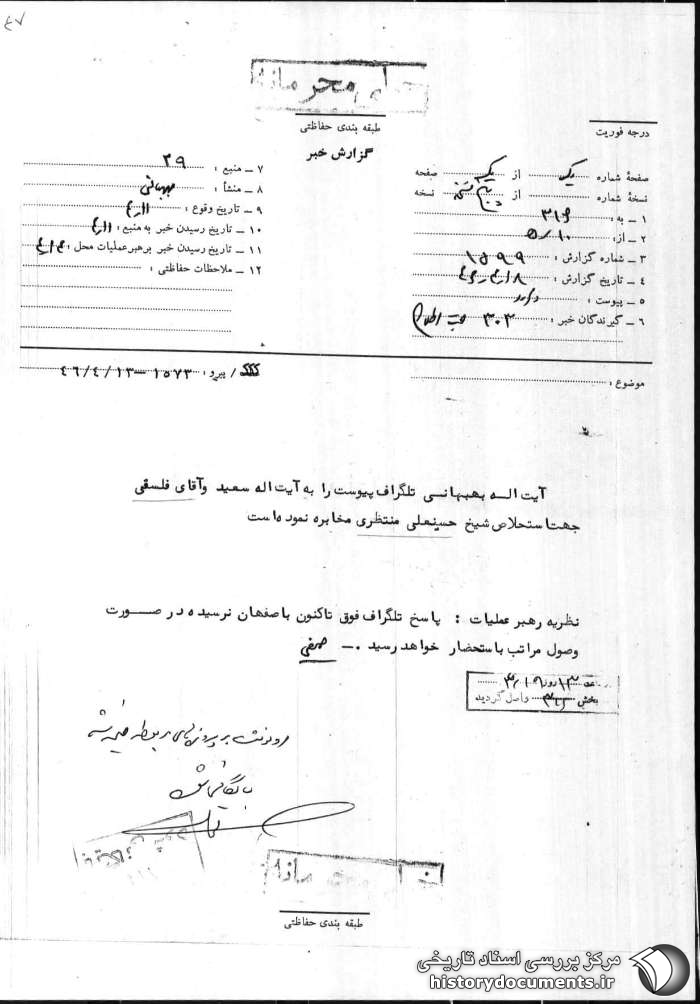 ۴۷
خیلی محرمانه
طبقه بندی حفاظتی
گزارش خبر
درجه فوریت
صفحهٔ شماره یک از یک صفحه
نسخهٔ شماره از نسخه
۱ ــ به : ۳۱۶
۲ ــ از : ۱۰/ﻫ
۳ ــ شماره گزارش : ۱۵۹۹
۴ ــ تاریخ گزارش :
۵ ــ پیوست : دارد
۶ ــ گیرندگان خبر : ۳۰۳
۷ ــ منبع : ۳۹
۸ ــ منشأ : بهبهانی
۹ ــ تاریخ وقوع :
۱۰ ــ تاریخ رسیدن خبر به منبع :
۱۱ ــ تاریخ رسیدن خبر برهبر عملیات محل :
۱۲ ــ ملاحظات حفاظتی :
موضوع :
/ پیرو : ۱۵۷۳ــ۴۶/۴/۱۳
آیت اله بهبهانی تلگراف پیوست را به آیت اله سعید وآقای فلسفی
جهت استخلاص شیخ حسینعلی منتظری مخابره نموده است
نظریه رهبر عملیات : پاسخ تلگراف فوق تاکنون باصفهان نرسیده در صورت
وصول مراتب باستحضار خواهد رسید .ــ
بخش ۳۱۶ واصل گردید
بایگانی شود
خیلی محرمانه
طبقه بندی حفاظتی
مرکز بررسی اسناد تاریخی
historydocuments.ir